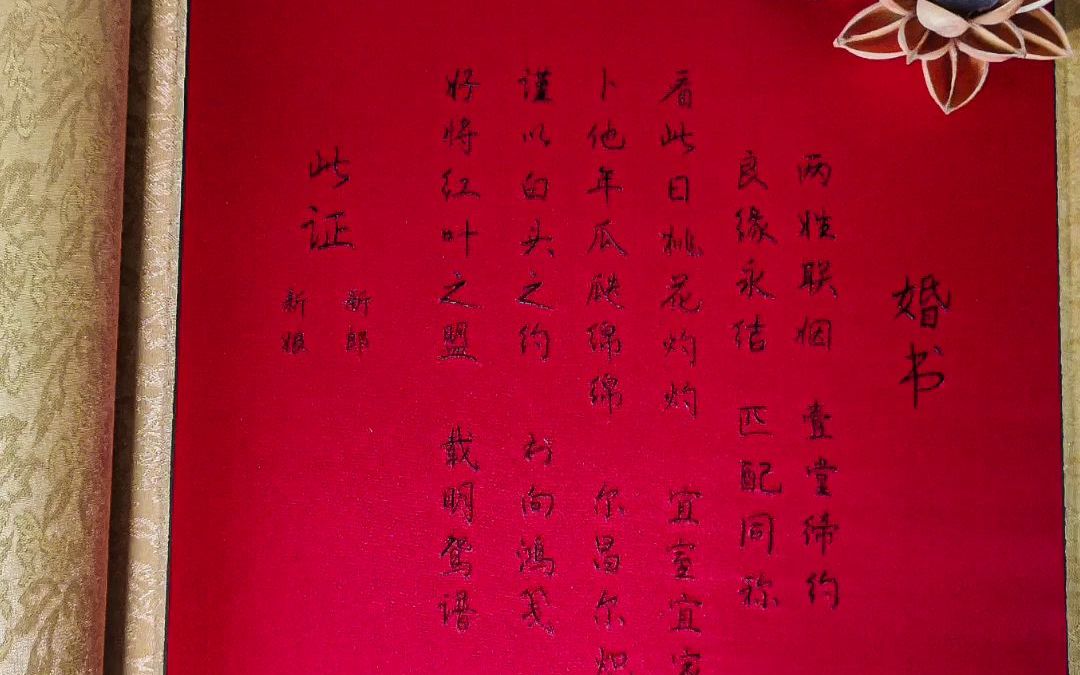 婚书
两姓联姻 壹堂缔约
良缘永结 匹配同称
看此日桃花灼灼 宜室宜家
卜他年瓜瓞绵绵 尔昌尔炽
谨以白头之约 书向鸿笺
好将红叶之盟 载明鸳谱
此证
新郎
新娘